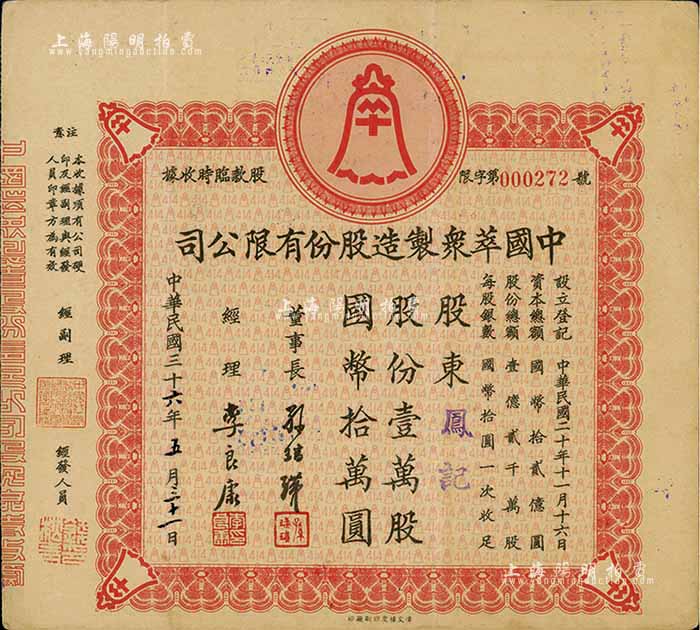 上海陽明拍賣
www.yangmingauction.com
限字第000272號
股款臨時收據
中國萃衆製造股份有限公司
設立登記 中華民國二十年十一月十六日
資本總額 國幣拾貳億圓
股份總額 壹億貳千萬股
每股銀數 國幣拾圓一次收足
股東 鳳記
股份壹萬股
國幣拾萬圓
董事長
經理 李良康
中華民國三十六年五月三十一日
注意
本次據須有公司硬
印及經副理與經發
人員印章方為有效
經副理
經發人員
414
上海陽明拍賣
www.yangmingauction.com
上海陽明拍賣
www.yangmingauction.com